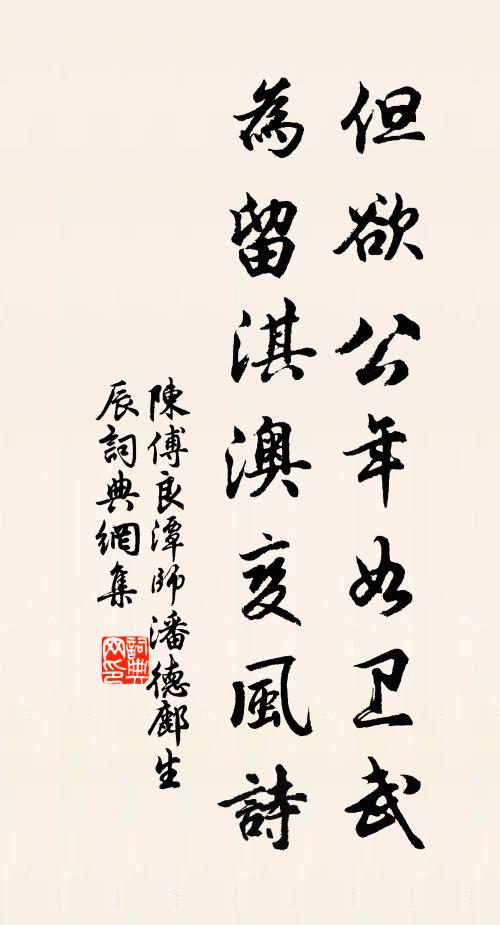 但欲公年如卫武
為留淇澳变風詩
陳傅良潭師潘德鄜生
辰詞典網集
詞典
网印